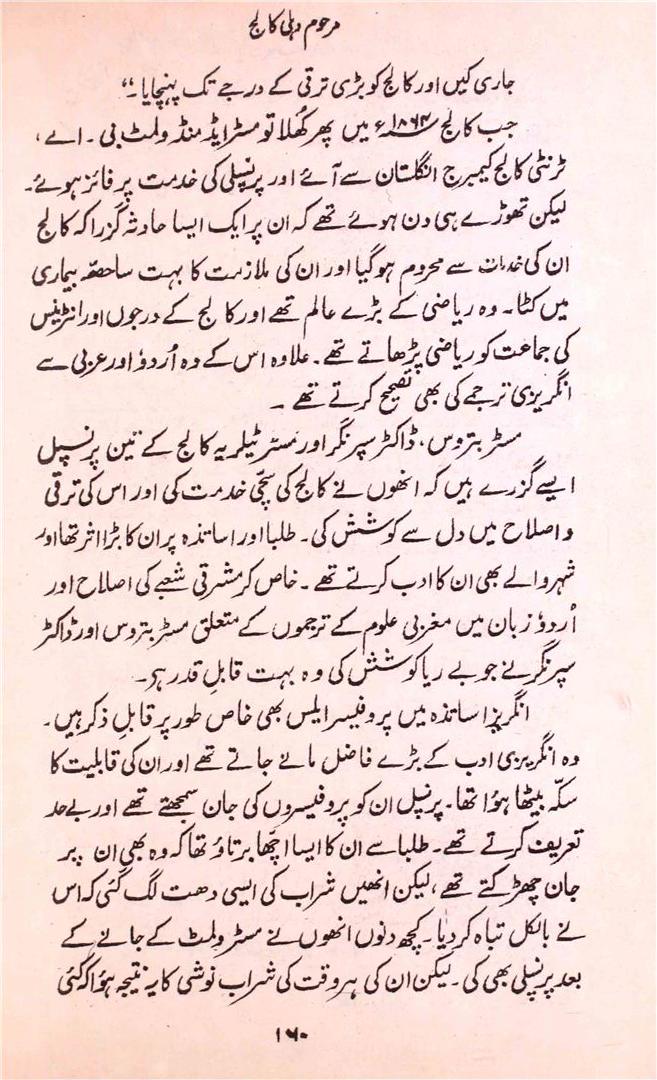 مرحوم دہلی کالج
جاری کیں اور کالج کو بڑی ترقی کے درجے تک پہنچایا۔“
جب کالج ۱۸۶۴ء میں پھر کُھلا تو مسٹر ایڈمنڈ ولمٹ بی۔ اے،
ٹرنٹی کالج کیمبرج انگلستان سے آئے اور پرنسپلی کی خدمت پر فائز ہوئے۔
لیکن تھوڑے ہی دن ہوئے تھے کہ ان پر ایک ایسا حادثہ گزرا کہ کالج
ان کی خدمات سے محروم ہوگیا اور ان کی ملازمت کا بہت سا حصّہ بیماری
میں کٹا۔ وہ ریاضی کے بڑے عالم تھے اور کالج کے درجوں اور انٹرینس
کی جماعت کو ریاضی پڑھاتے تھے۔ علاوہ اس کے وہ اُردؤ اور عربی سے
انگریزی ترجمے کی بھی تصیح کرتے تھے ۔
مسٹر بتروس، ڈاکٹر سپرنگر اور مسٹر ٹیلر یہ کالج کے تین پرنسپل
ایسے گزرے ہیں کہ انھوں نے کالج کی سچّی خدمت کی اور اس کی ترقی
و اصلاح میں دل سے کوشش کی۔ طلبا اور اساتذہ پر ان کا بڑا اثر تھا اور
شہر والے بھی ان کا ادب کرتے تھے۔ خاص کر مشرقی شعبے کی اصلاح اور
اُردؤ زبان میں مغربی علوم کے ترجموں کے متعلق مسٹر بتروس اور ڈاکٹر
سپرنگر نے جو بے ریا کوشش کی وہ بہت قابلِ قدر ہر۔
انگریز اساتذہ میں پروفیسر ایلس بھی خاص طور پر قابلِ ذکر ہیں۔
وہ انگریزی ادب کے بڑے فاضل مانے جاتے تھے اور ان کی قابلیت کا
سکّہ بیٹھا ہؤا تھا۔ پرنسپل ان کو پروفیسروں کی جان سمجھتے تھے اور بے حد
تعریف کرتے تھے۔ طلبا سے ان کا ایسا اچھّا برتاؤ تھا کہ وہ بھی ان پر
جان چھڑکتے تھے، لیکن انھیں شراب کی ایسی دھت لگ گئی کہ اس
نے بالکل تباہ کردیا۔ کچھ دنوں انھوں نے مسٹر ولمٹ کے جانے کے
بعد پرنسپلی بھی کی۔ لیکن ان کی ہر وقت کی شراب نوشی کا یہ نتیجہ ہؤا کہ کئی
۱۶۰